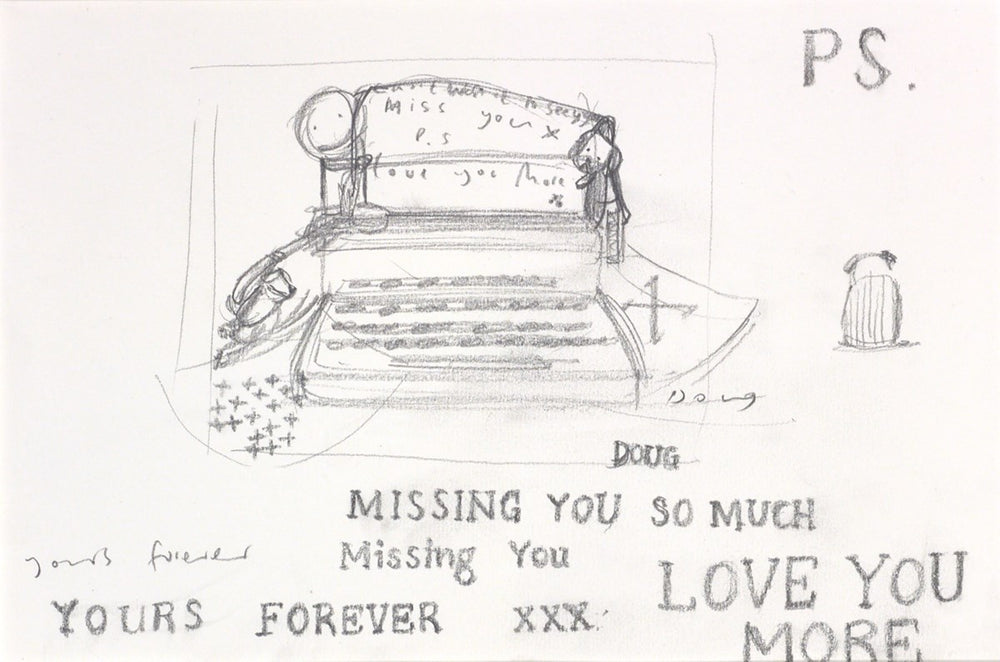 PS.
Can't wait to see you
Miss you x
P.S
Love you More
Doug
DOUG
MISSING YOU SO MUCH
Missing You
yours forever
LOVE YOU
YOURS FOREVER XXX
MORE